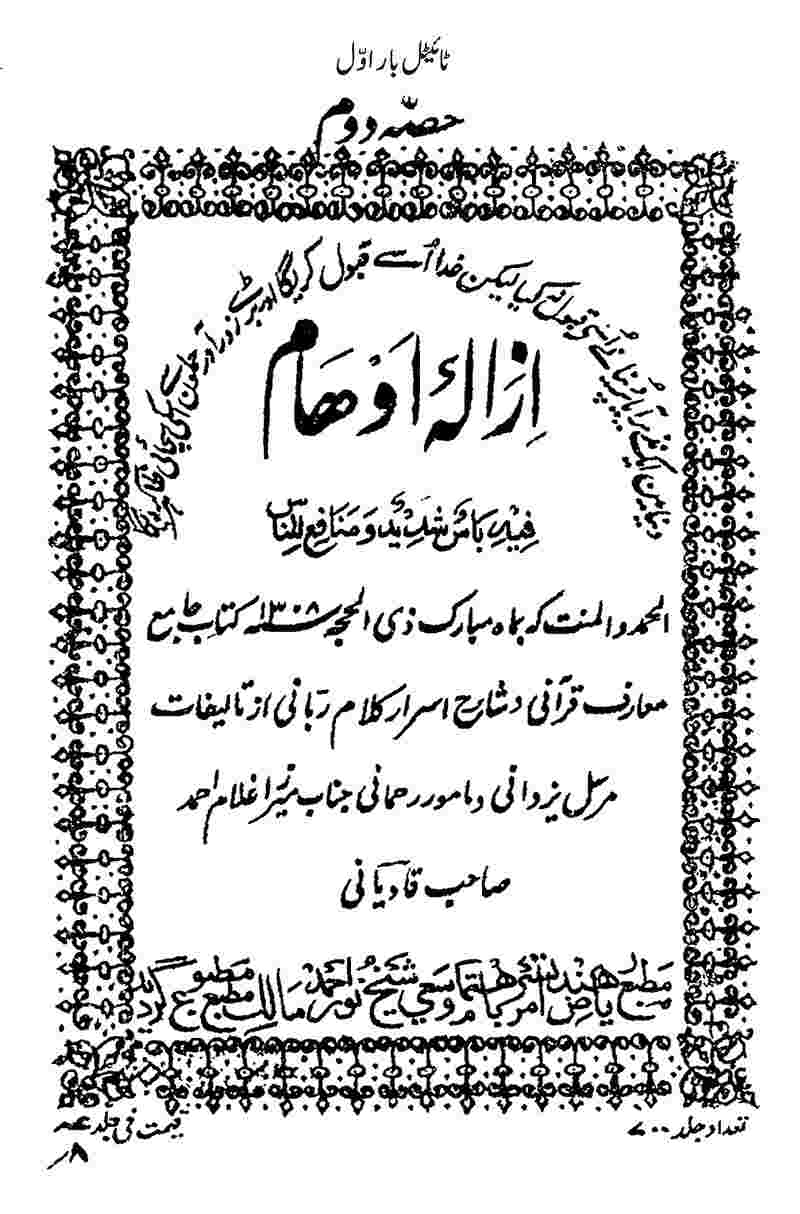 ٹائیٹل بار اوّل
حصّہ دوم
دنیا مین ایک نذیر آیا پر دنیا نے اُسے قبول نہ کیا لیکن خدا اُسے قبول کریگا اور بڑے زور آور حملون سے اسکی سچائی ظاہر کردیگا
اِزَالۂ اَوْهَام
فِيْهِ بَاْسٌ شَدِيْدٌ وَّمَنَافِعُ لِلنَّاسِ
الحمد والمنت کہ بماہ مبارک ذی الحجہ ۱۳۰۸ کتاب جامع
معارف قرآنی و شارح اسرار کلام ربّانی از تالیفات
مرسل یزدانی و مامور رحمانی جناب میرزا غلام احمد
صاحب قادیانی
مطبع ریاض ہند امرتسر باہتمام وسعی شیخ نور احمد مالک مطبع مطبوع گردید
تعداد جلد ۷۰۰
قیمت فی جلد